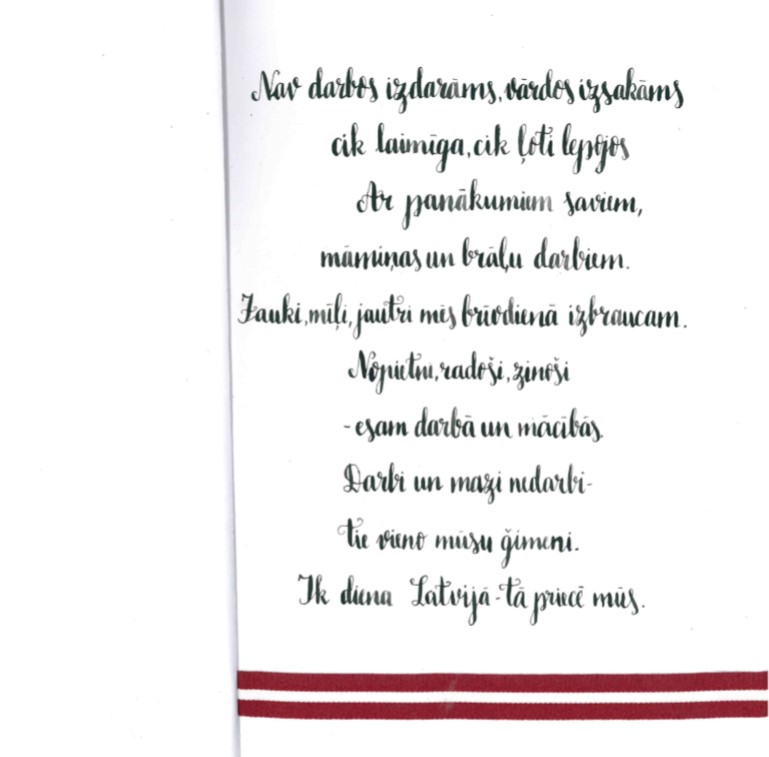 Nav darbos izdarāms, vārdos izsakāms
cik laimīga, cik ļoti lepojos
Ar panākumiem saviem,
māmiņas un brāļu darbiem.
Jauki, mīļi, jautri mēs brīvdienā izbraucam.
Nopietni, radoši, zinoši
-esam darbā un mācībās.
Darbi un mazi nedarbi-
tie vieno mūsu ģimeni.
Ik diena Latvijā-tā priecē mūs.